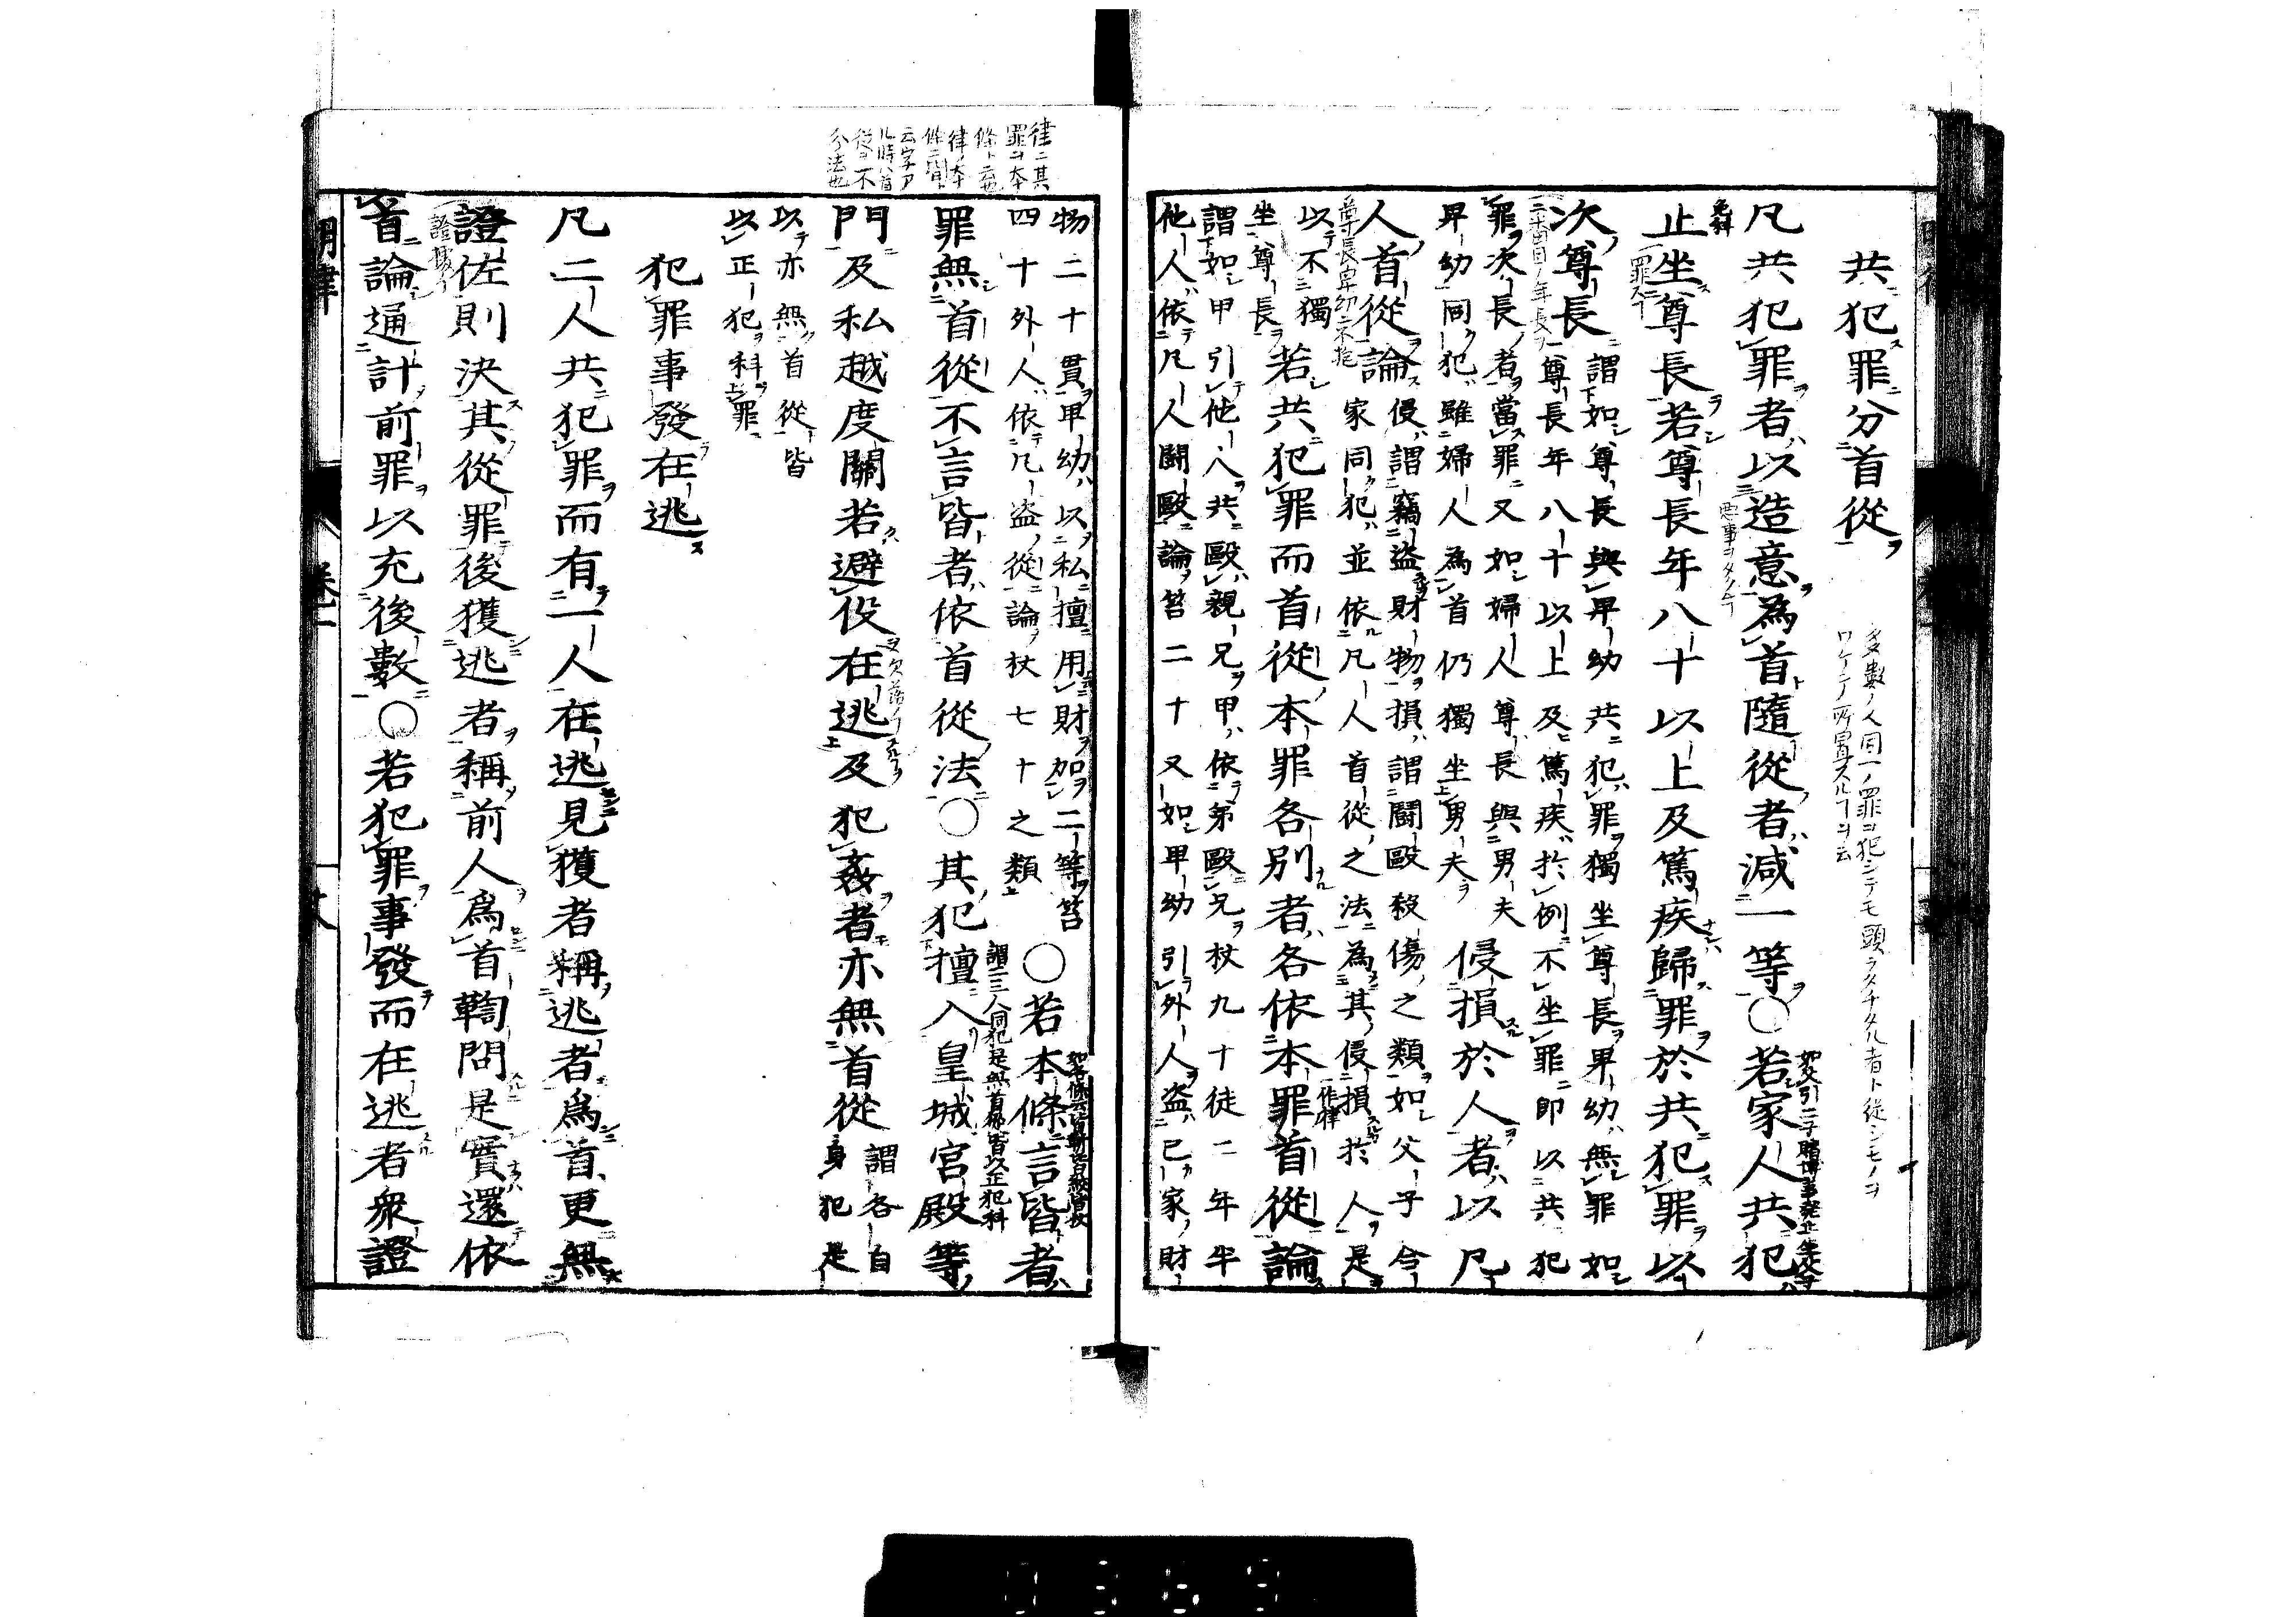 共犯罪分首從
多數ノ人同一ノ罪ヲ犯シテモ頭ヲタチタル者ト從シモノヲ
ワケテ所置スルヿヲ云
凡共犯罪者以造意為首隨從者減一等○若家人共犯
止坐尊長若尊長年八十以上及篤疾歸罪於共犯罪以
次尊長
謂如尊長與卑幼共犯罪獨坐尊長卑幼無罪如
尊長年八十以上及篤疾於例不坐罪即以共犯
罪次長者當罪又如婦人尊長與男夫
卑幼同犯雖婦人為首仍獨坐男夫
侵損於人者以凡
人首從論
侵謂竊盜財物損謂鬪毆殺傷之類如父子合
家同犯並依凡人首從之法為其侵損於人是
以不獨
坐尊長
若共犯罪而首從本罪各別者各依本罪首從論
謂如甲引他人共毆親兄甲依弟毆兄杖九十徒二年半
他人依凡人鬪毆論笞二十又如卑幼引外人盜己家財
物二十貫卑幼以私擅用財加二等笞
四十外人依凡盜從論杖七十之類
○若本條言皆者
罪無首從不言皆者依首從法○其犯擅入皇城宮殿等
謂三人同犯是無首從皆以正犯科
門及私越度關若避役在逃及犯姦者亦無首從
謂各自
身犯是
以亦無首從皆
以正犯科罪
犯罪事發在逃
凡二人共犯罪而有一人在逃見獲者稱逃者為首更無
證佐則決其從罪後獲逃者稱前人為首鞫問是實還依
首論通計前罪以充後數○若犯罪事發而在逃者衆證
律ニ其
罪ヲ本
條ト云也
律ノ本
條ニ皆ト
云字ア
ル時ハ首
從ヲ不
分法也
明律
卷一